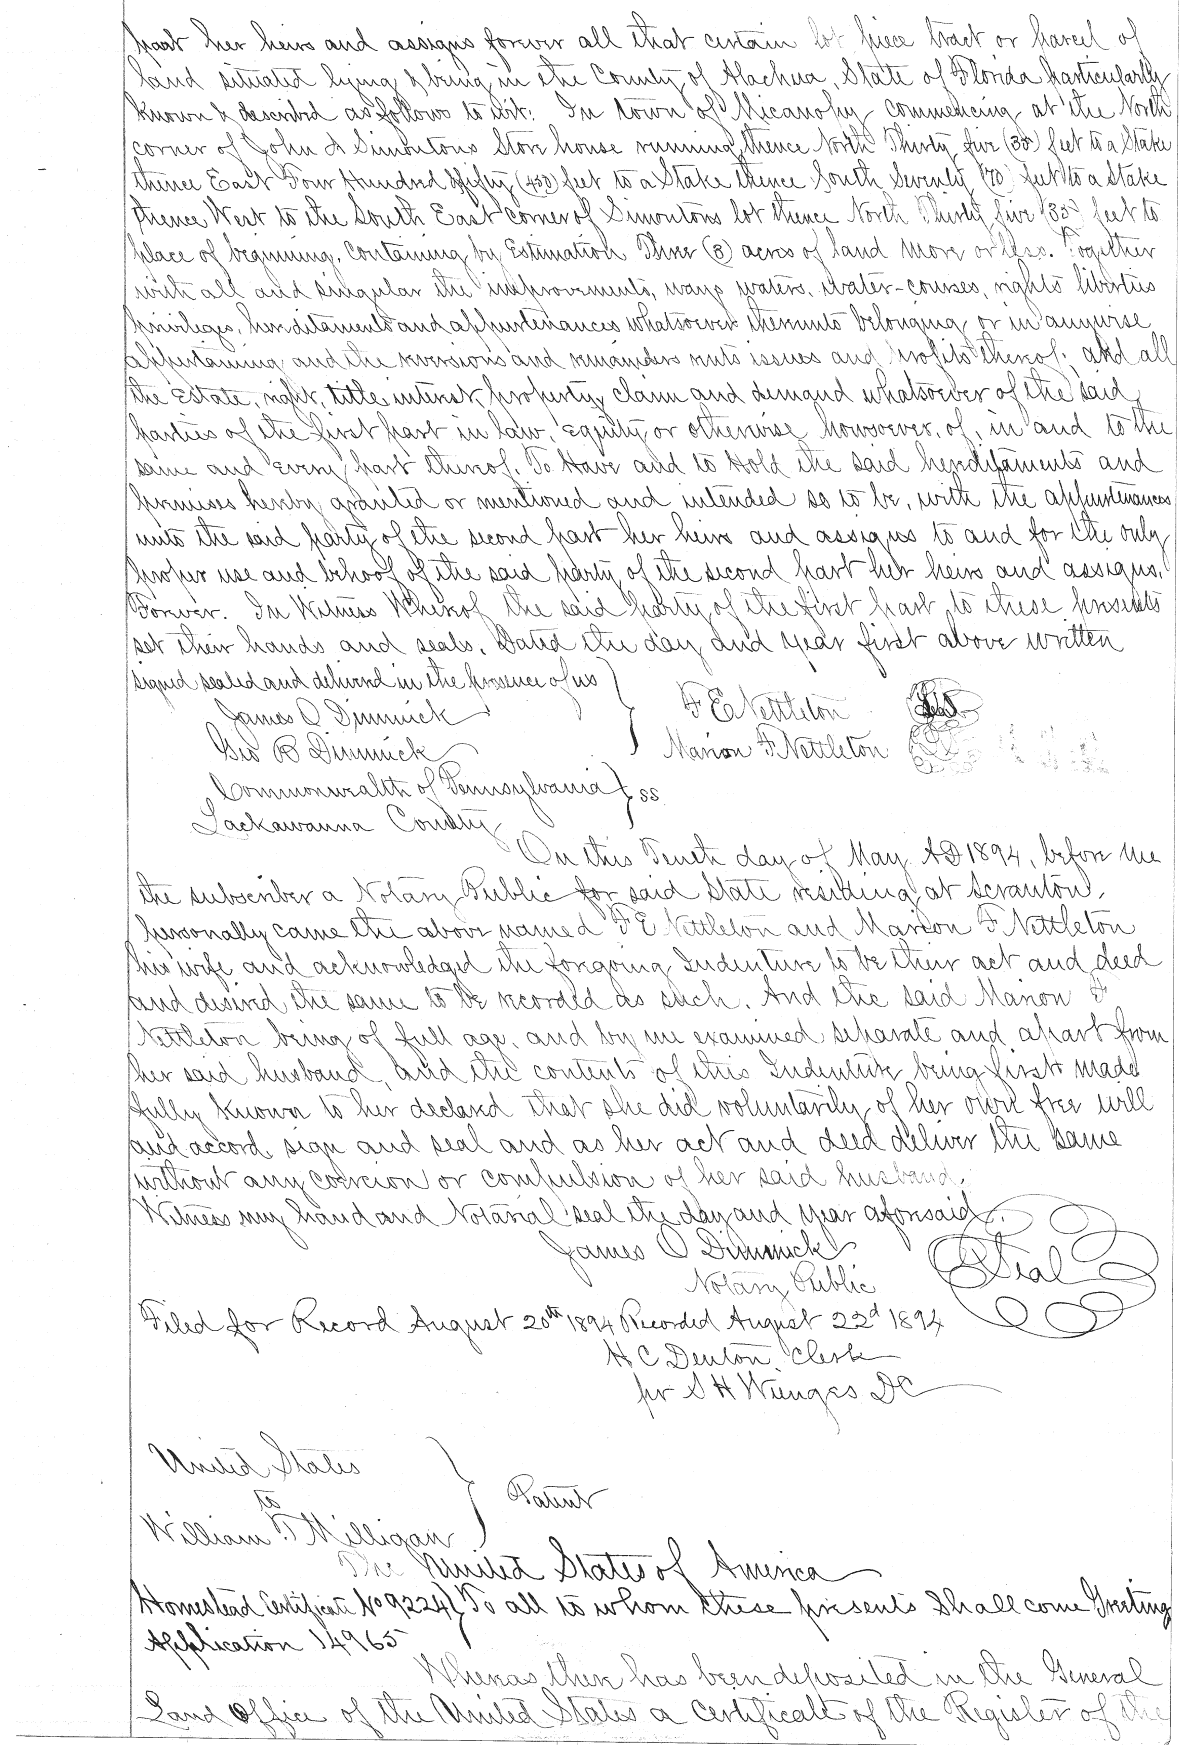 part her heirs and assigns forever all that certain lot piece tract or parcel of
land situated lying & being in the County of Alachua, State of Florida particularly
known & described as follows to wit: In town of Micanopy commencing at the North
corner of John & Simontons Store house running thence North Thirty five (35) feet to a Stake
thence East Four Hundred & fifty (450) feet to a Stake thence South Seventy (70) feet to a Stake
thence West to the South East corner of Simontons lot thence North Thirty five (35) feet to
place of beginning. Containing by Estimation Three (3) acres of land more or less. Together
with all and singular the improvements, ways waters, water-courses, rights liberties
privileges, hereditaments and appurtenances whatsoever thereunto belonging or in anywise
appertaining and the reversions and remainders rents issues and profits thereof; and all
the Estate, right, title interest, property, claim and demand whatsoever of the said
parties of the first part in law, equity or otherwise howsoever, of, in and to the
same and every part thereof. To Have and to Hold the said hereditaments and
premises hereby granted or mentioned and intended so to be, with the appurtenances
unto the said party of the second part her heirs and assigns to and for the only
proper use and behoof of the said party of the second part her heirs and assigns,
Forever. In Witness Whereof the said party of the first part to these presents
set their hands and seals. Dated the day and year first above written
signed sealed and delivered in the presence of us
James O Dimmick F E Nettleton Seal
Geo B Dimmick Marion F Nettleton
Commonwealth of Pennsylvania } SS
Lackawanna County
On this Tenth day of May AD 1894, before me
the subscriber a Notary Public for said State residing at Scranton,
personally came the above named F E Nettleton and Marion F Nettleton
his wife and acknowledged the foregoing Indenture to be their act and deed
and desired the same to be recorded as such. And the said Marion F
Nettleton being of full age, and by me examined separate and apart from
her said husband, and the contents of this Indenture being first made
fully known to her declared that she did voluntarily of her own free will
and accord, sign and seal and as her act and deed deliver the same
without any coercion or compulsion of her said husband.
Witness my hand and Notarial seal the day and year aforesaid.
James O Dimmick Seal
Notary Public
Filed for Record August 20th 1894 Recorded August 22d 1894
H C Denton, Clerk
per S H Wienges DC
United States
to } Patent
William T Milligan
The United States of America
Homestead Certificate No 9224 } To all to whom these presents Shall come Greeting
Application 14965
Whereas there has been deposited in the General
Land Office of the United States a Certificate of the Register of the